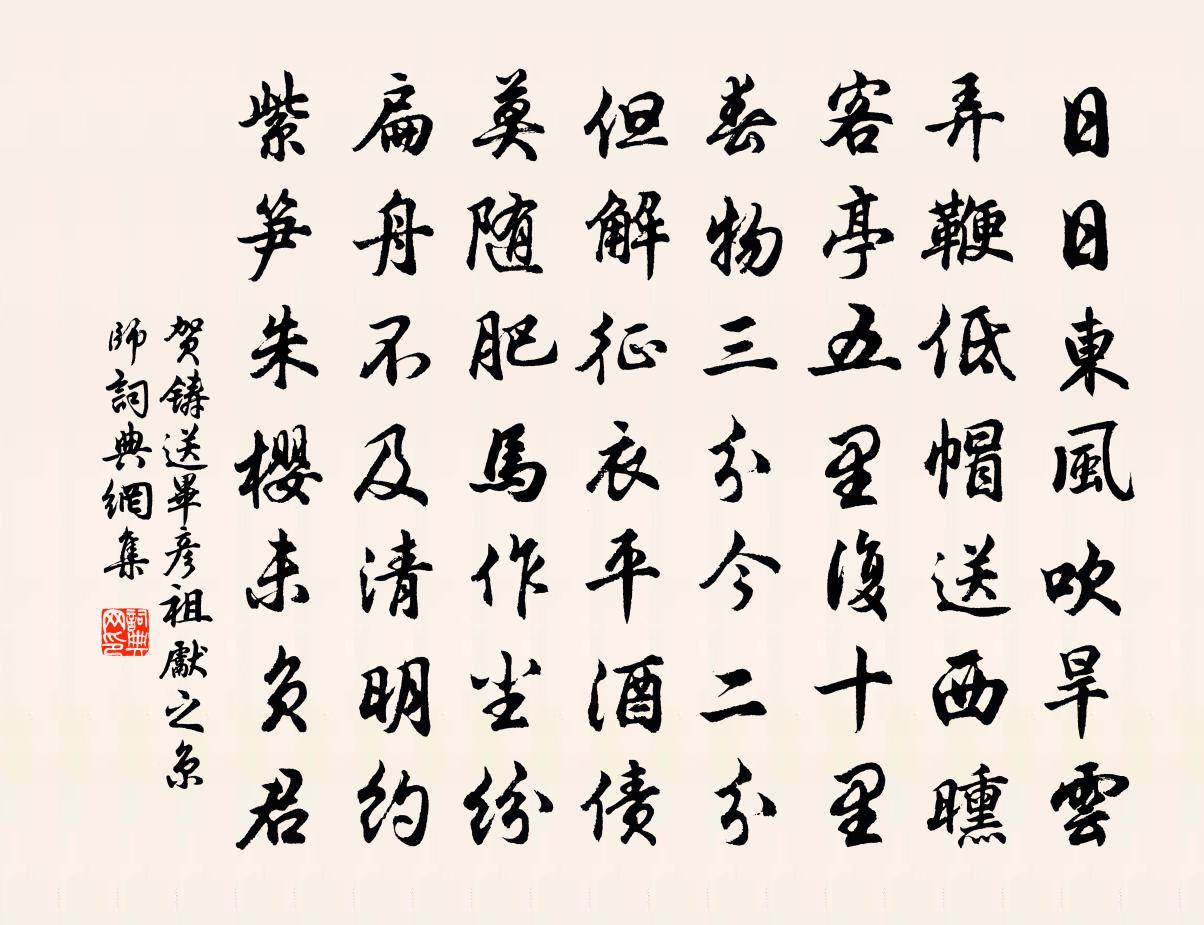 日日東風吹旱雲
弄鞭低帽送西曛
客亭五里復十里
春物三分今二分
但解征衣平酒債
莫随肥馬作尘紛
扁舟不及清明約
紫笋朱櫻未負君
賀鑄送畢彦祖獻之京
師詞典網集
詞典网印